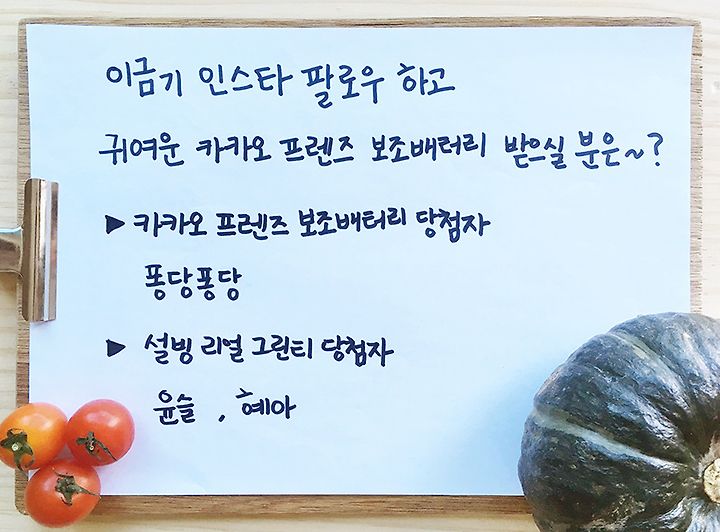 이금기 인스타 팔로우 하고
귀여운 카카오 프렌즈 보조배터리 받으실 분은~?
▶ 카카오 프렌즈 보조배터리 당첨자
퐁당퐁당
▶ 설빙 리얼 그린티 당첨자
윤슬 , 혜아